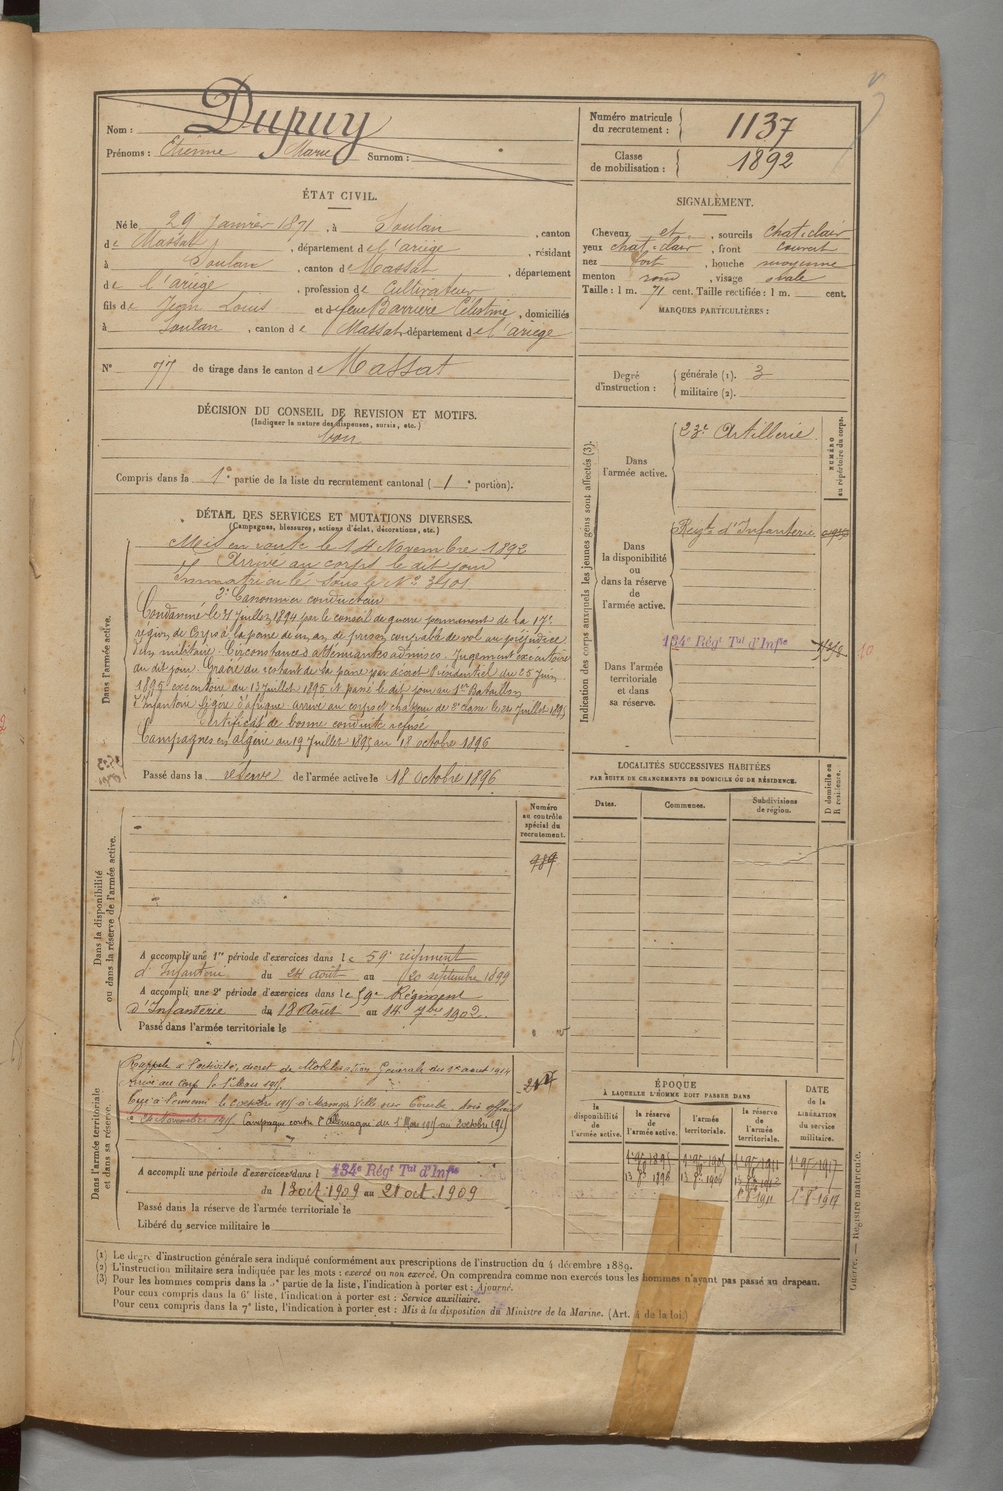 Nom : Dupuy
Prénoms : Etienne Marie Surnom :
Numéro matricule
du recrutement : 1137
Classe
de mobilisation : 1892
ÉTAT CIVIL.
Né le 29 Janvier 1871, à Soulan, canton
de Massat, département de l'ariège, résidant
à Soulan, canton de Massat, département
de l'ariège, profession de Cultivateur
fils de Jean Louis et de feue Barrière Célestine, domiciliés
à Soulan, canton de Massat département de l'ariège
N° 77 de tirage dans le canton de Massat
SIGNALEMENT.
Cheveux et, sourcils chat. clair
yeux chat. clair, front couvert
nez fort, bouche moyenne
menton rond, visage ovale
Taille : 1 m. 71 cent. Taille rectifiée : 1 m. cent.
MARQUES PARTICULIÈRES :
Degré
d'instruction :
générale (1). 3
militaire (2).
DÉCISION DU CONSEIL DE REVISION ET MOTIFS.
(Indiquer la nature des dispenses, sursis, etc.)
bon
Compris dans la 1e partie de la liste du recrutement cantonal ( 1 e portion).
DÉTAIL DES SERVICES ET MUTATIONS DIVERSES.
(Campagnes, blessures, actions d'éclat, décorations, etc.)
Dans l'armée active.
Mis en route le 14 Novembre 1892
Arrivé au corps le dit jour
Immatriculé sous le N° 3401
2e Canonnier conducteur
Condamné le 31 juillet 1894 par le conseil de guerre permanent de la 17e
région de Corps à la peine de un an de prison coupable de vol au préjudice
d'un militaire. Circonstances atténuantes admises. Jugement exécutoire
du dit jour. Gracié du restant de sa peine par décret Présidentiel du 25 juin
1895 exécutoire du 13 Juillet 1895 et passé le dit jour au 1er Bataillon
d'Infanterie légère d'afrique. arrivé au corps et chasseur de 2e classe le 20 juillet 1895
Certificat de bonne conduite refusé
Campagnes en algérie du 19 Juillet 1895 au 18 octobre 1896
Passé dans la réserve de l'armée active le 18 Octobre 1896
Indication des corps auxquels les jeunes gens sont affectés (3).
Dans
l'armée active.
23e Artillerie
NUMÉRO
au répertoire du corps.
Dans
la disponibilité
ou
dans la réserve
de
l'armée active.
Regt d'Infanterie
Dans l'armée
territoriale
et dans
sa réserve.
134e Régt Tal d'Infie
10
LOCALITÉS SUCCESSIVES HABITÉES
PAR SUITE DE CHANGEMENTS DE DOMICILE OU DE RÉSIDENCE.
Dates.
Communes.
Subdivisions
de région.
D domicile ou
R résidence.
Dans la disponibilité
ou dans la réserve de l'armée active.
Numéro
au contrôle
spécial du
recrutement.
989
A accompli une 1re période d'exercices dans le 59e régiment
d'Infanterie du 24 août au 20 septembre 1899
A accompli une 2e période d'exercices dans le 59e Régiment
d'Infanterie du 18 Août au 14 7bre 1902.
Passé dans l'armée territoriale le
Dans l'armée territoriale
et dans sa réserve.
Rappelé à l'activité, décret de Mobilisation Générale du 1er août 1914
Arrivé au corps le 1er Mars 1915.
26 Novembre 1915. Campagne contre l'Allemagne du 1 Mars 1915 au 2 octobre 1915
A accompli une période d'exercices dans l 134e Régt Tal d'Infie
du 13 oct. 1909 au 21 oct. 1909
Passé dans la réserve de l'armée territoriale le
Libéré du service militaire le
ÉPOQUE
À LAQUELLE L'HOMME DOIT PASSER DANS
DATE
de la
LIBÉRATION
du service
militaire.
la
disponibilité
de
l'armée active.
la réserve
de
l'armée active.
l'armée
territoriale.
la réserve
de
l'armée
territoriale.
(1) Le degré d'instruction générale sera indiqué conformément aux prescriptions de l'instruction du 4 décembre 1889.
(2) L'instruction militaire sera indiquée par les mots : exercé ou non exercé. On comprendra comme non exercés tous les hommes n'ayant pas passé au drapeau.
(3) Pour les hommes compris dans la 5e partie de la liste, l'indication à porter est : Ajourné.
Pour ceux compris dans la 6e liste, l'indication à porter est : Service auxiliaire.
Pour ceux compris dans la 7e liste, l'indication à porter est : Mis à la disposition du Ministre de la Marine. (Art. 4 de la loi.)
Guerre. — Registre matricule.